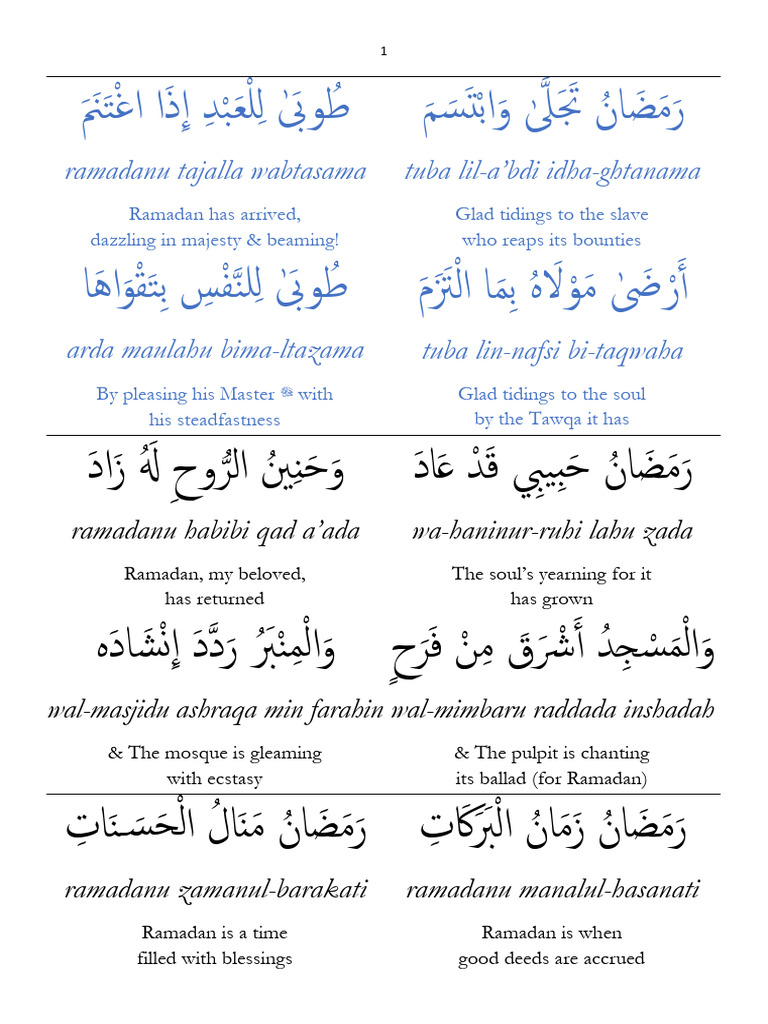 1
رَمَضَانُ تَجَلَّىٰ وَابْتَسَمَ طُوبَىٰ لِلْعَبْدِ إِذَا اغْتَنَمَ
ramadanu tajalla wabtasama tuba lil-a’bdi idha-ghtanama
Ramadan has arrived, Glad tidings to the slave
dazzling in majesty & beaming! who reaps its bounties
أَرْضَىٰ مَوْلَاهُ بِمَا الْتَزَمَ طُوبَىٰ لِلنَّفْسِ بِتَقْوَاهَا
arda maulahu bima-ltazama tuba lin-nafsi bi-taqwaha
By pleasing his Master ﷻ with Glad tidings to the soul
his steadfastness by the Tawqa it has
رَمَضَانُ حَبِيبِي قَدْ عَادَ وَحَنِينُ الرُّوحِ لَهُ زَادَ
ramadanu habibi qad a’ada wa-haninur-ruhi lahu zada
Ramadan, my beloved, The soul’s yearning for it
has returned has grown
وَالْمَسْجِدُ أَشْرَقَ مِنْ فَرَحٍ وَالْمِنْبَرُ رَدَّدَ إِنْشَادَه
wal-masjidu ashraqa min farahin wal-mimbaru raddada inshadah
& The mosque is gleaming & The pulpit is chanting
with ecstasy its ballad (for Ramadan)
رَمَضَانُ زَمَانُ الْبَرَكَاتِ رَمَضَانُ مَنَالُ الْحَسَـنَاتِ
ramadanu zamanul-barakati ramadanu manalul-hasanati
Ramadan is a time Ramadan is when
filled with blessings good deeds are accrued